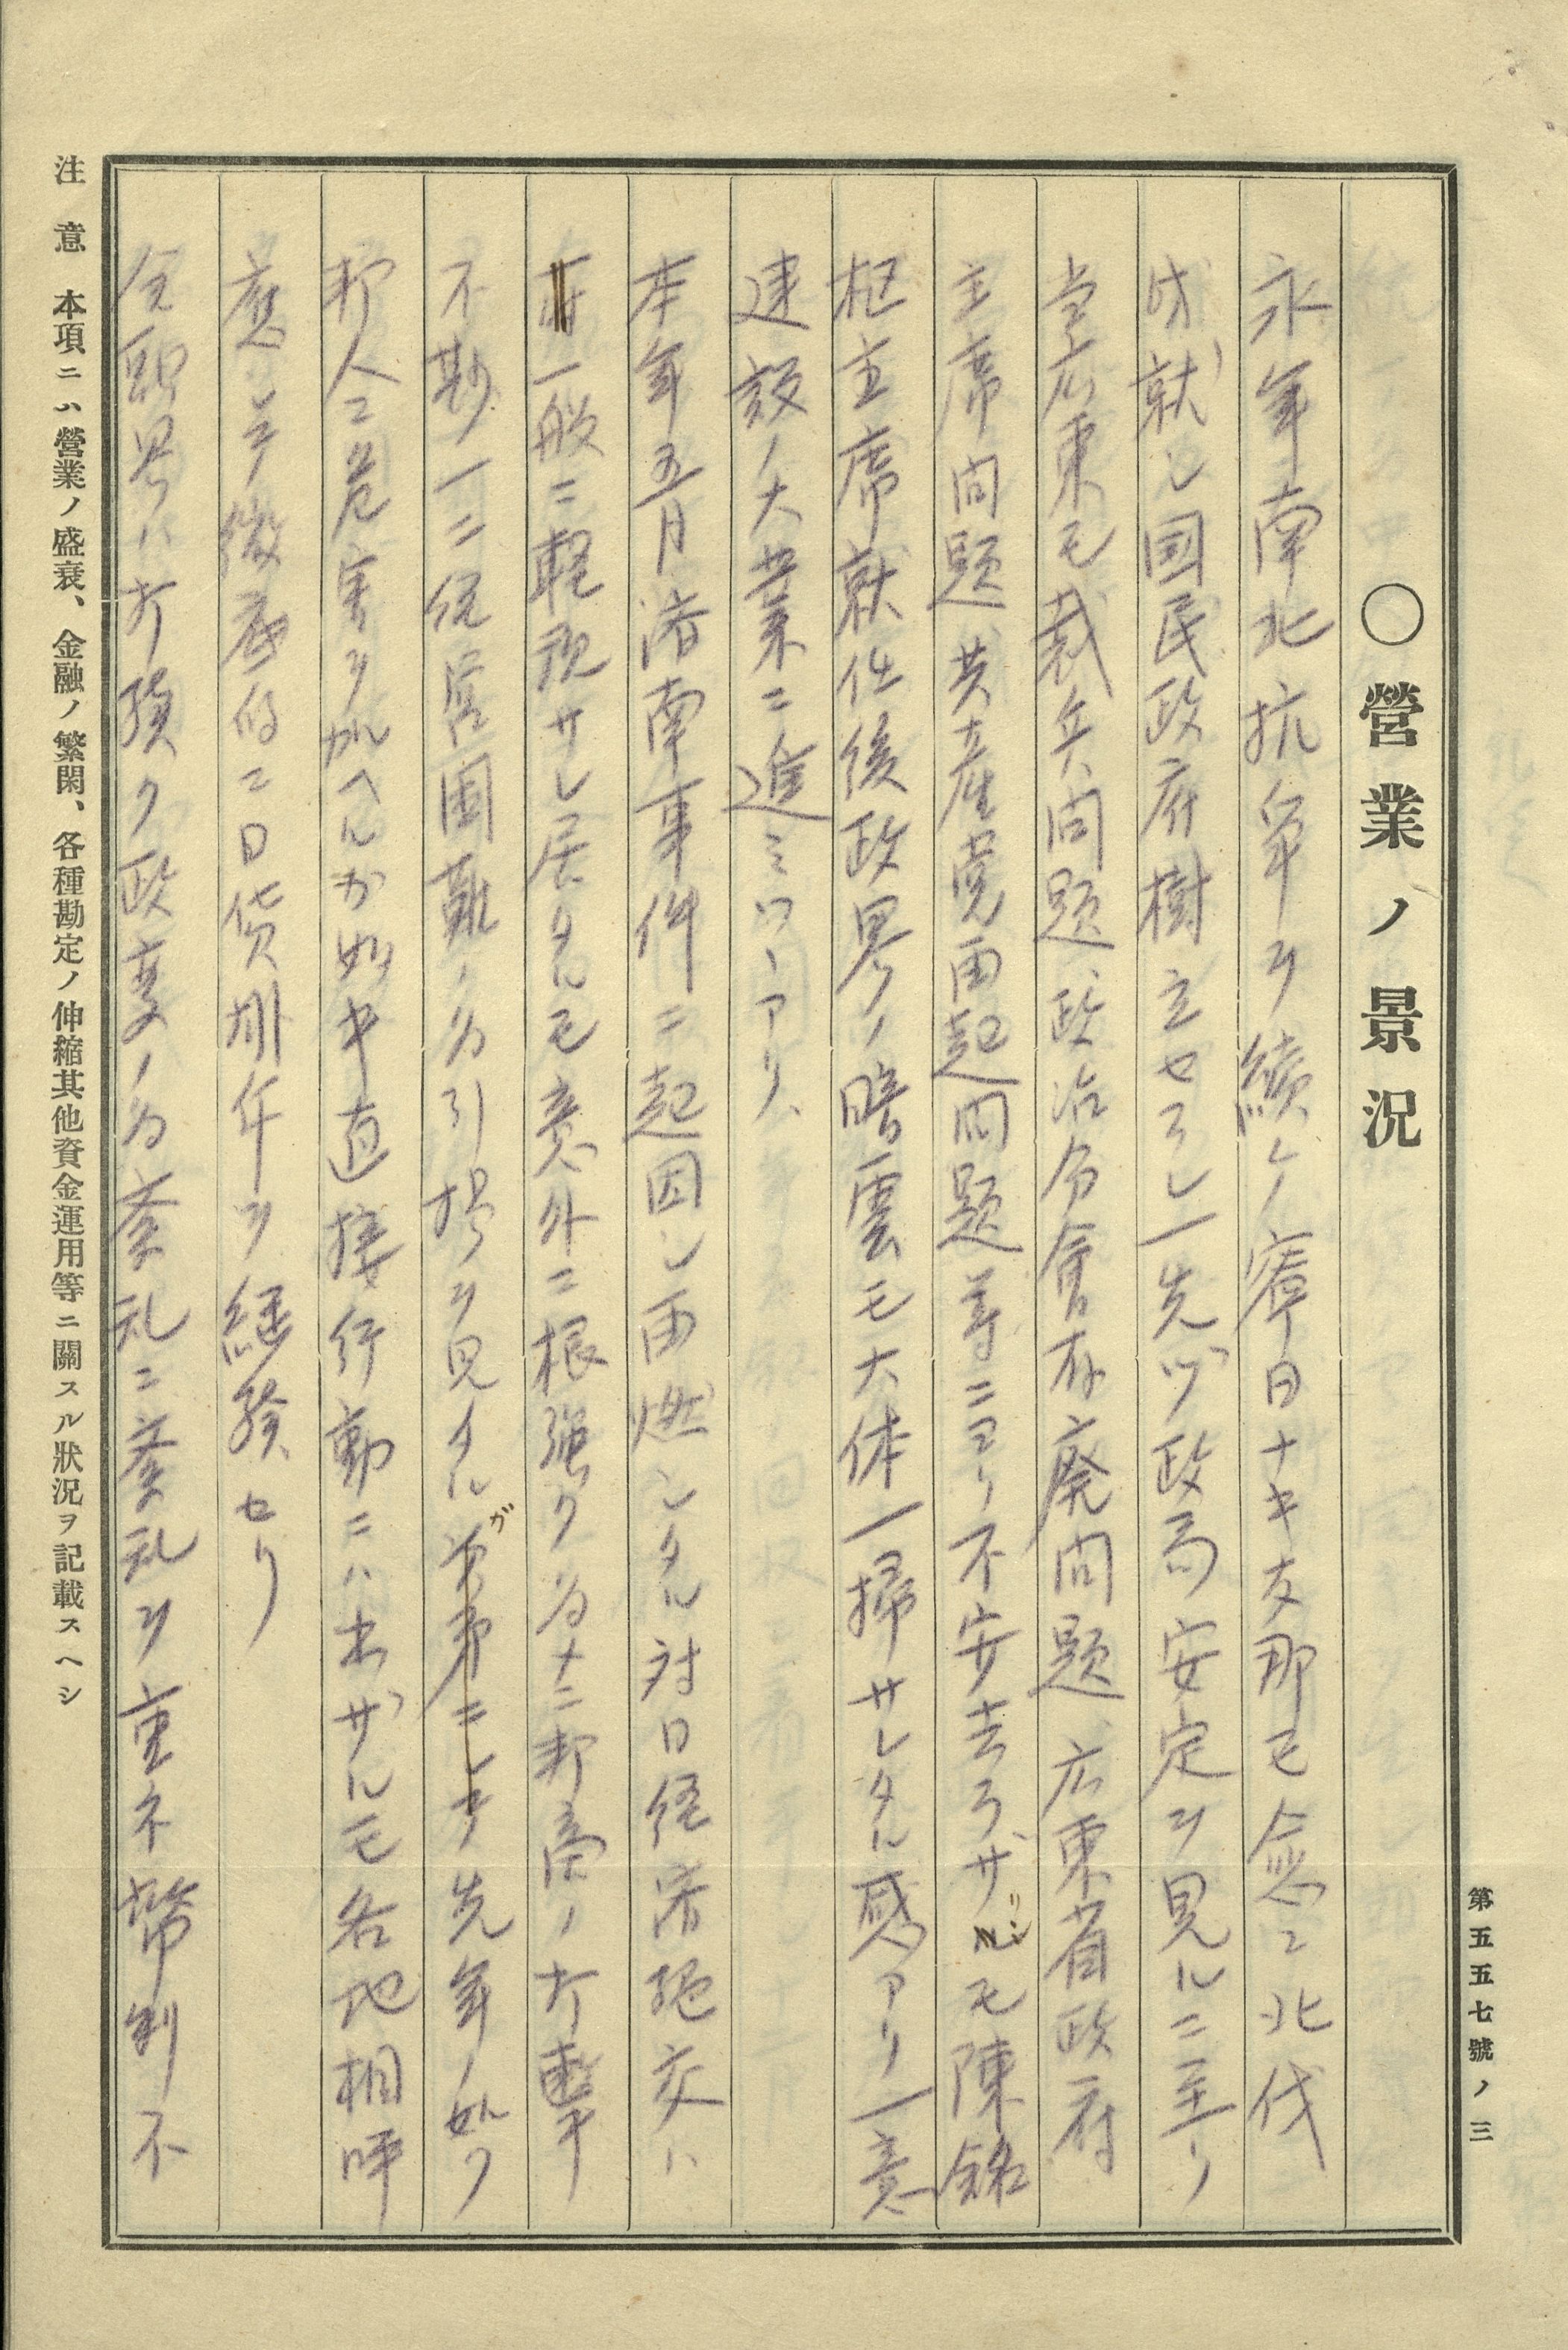 第五五七號ノ三
〇營業ノ景況
永年南北抗爭ヲ續ケ寧日ナキ支那モ愈々北伐
成就シ國民政府樹立セラレ一先ヅ政局安定ヲ見ルニ至リ
當広東モ裁兵問題、政治分會存廃問題、広東省政府
主席問題、共産党再起問題等ニヨリ不安去ラザリシモ陳銘
枢主席就任後政界ノ暗雲モ大体一掃サレタル感アリ一意
建設ノ大業ニ進ミツヽアリ、
本年五月済南事件ニ起因シ再燃シタル対日経済絶交ハ
一般ニ軽視サレ居タルモ意外ニ根強ク為ナニ邦商ノ打撃
不尠一二経営困難ノ為引揚ヲ見タルガ先年ノ如ク
邦人ニ危害ヲ加ヘルガ如キ直接行動ニハ出ザルモ各地相呼
應シテ徹底的ニ日貨排斥ヲ継続セリ
金融界ハ打續ク政変ノ為紊乱ニ紊乱ヲ重ネ幣制不
注意 本項ニハ營業ノ盛衰、金融ノ繁閑、各種勘定ノ伸縮其他資金運用等ニ關スル狀況ヲ記載スヘシ